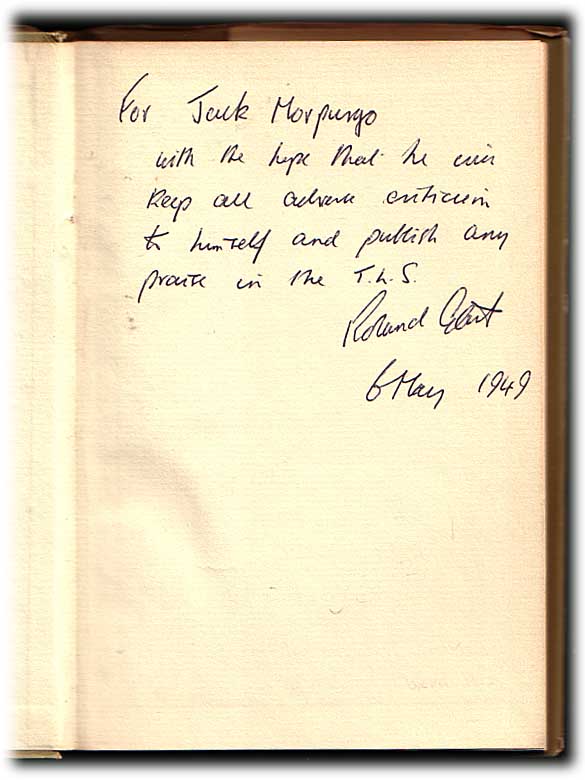 For Jack Morpurgo
with the hope that he will
keep all adverse criticism
to himself and publish any
praise in the T.L.S.
Roland Gant
6 May 1949